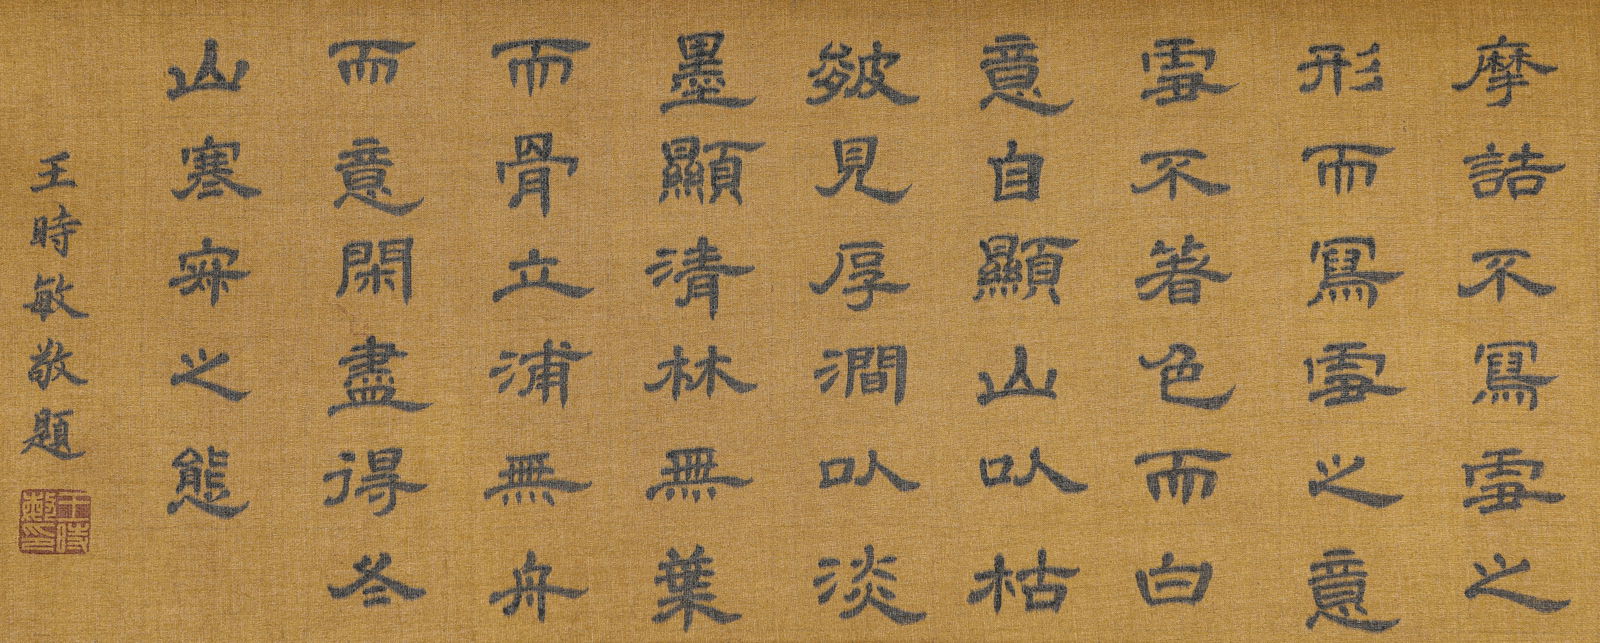 摩詰不寫雪之
形而寫雪之意
雪不著色而白
意自顯山以枯
皴見厚澗以淡
墨顯清林無葉
而骨立浦無舟
而意閑盡得冬
山寒寂之態
王時敏敬題
王時敏印